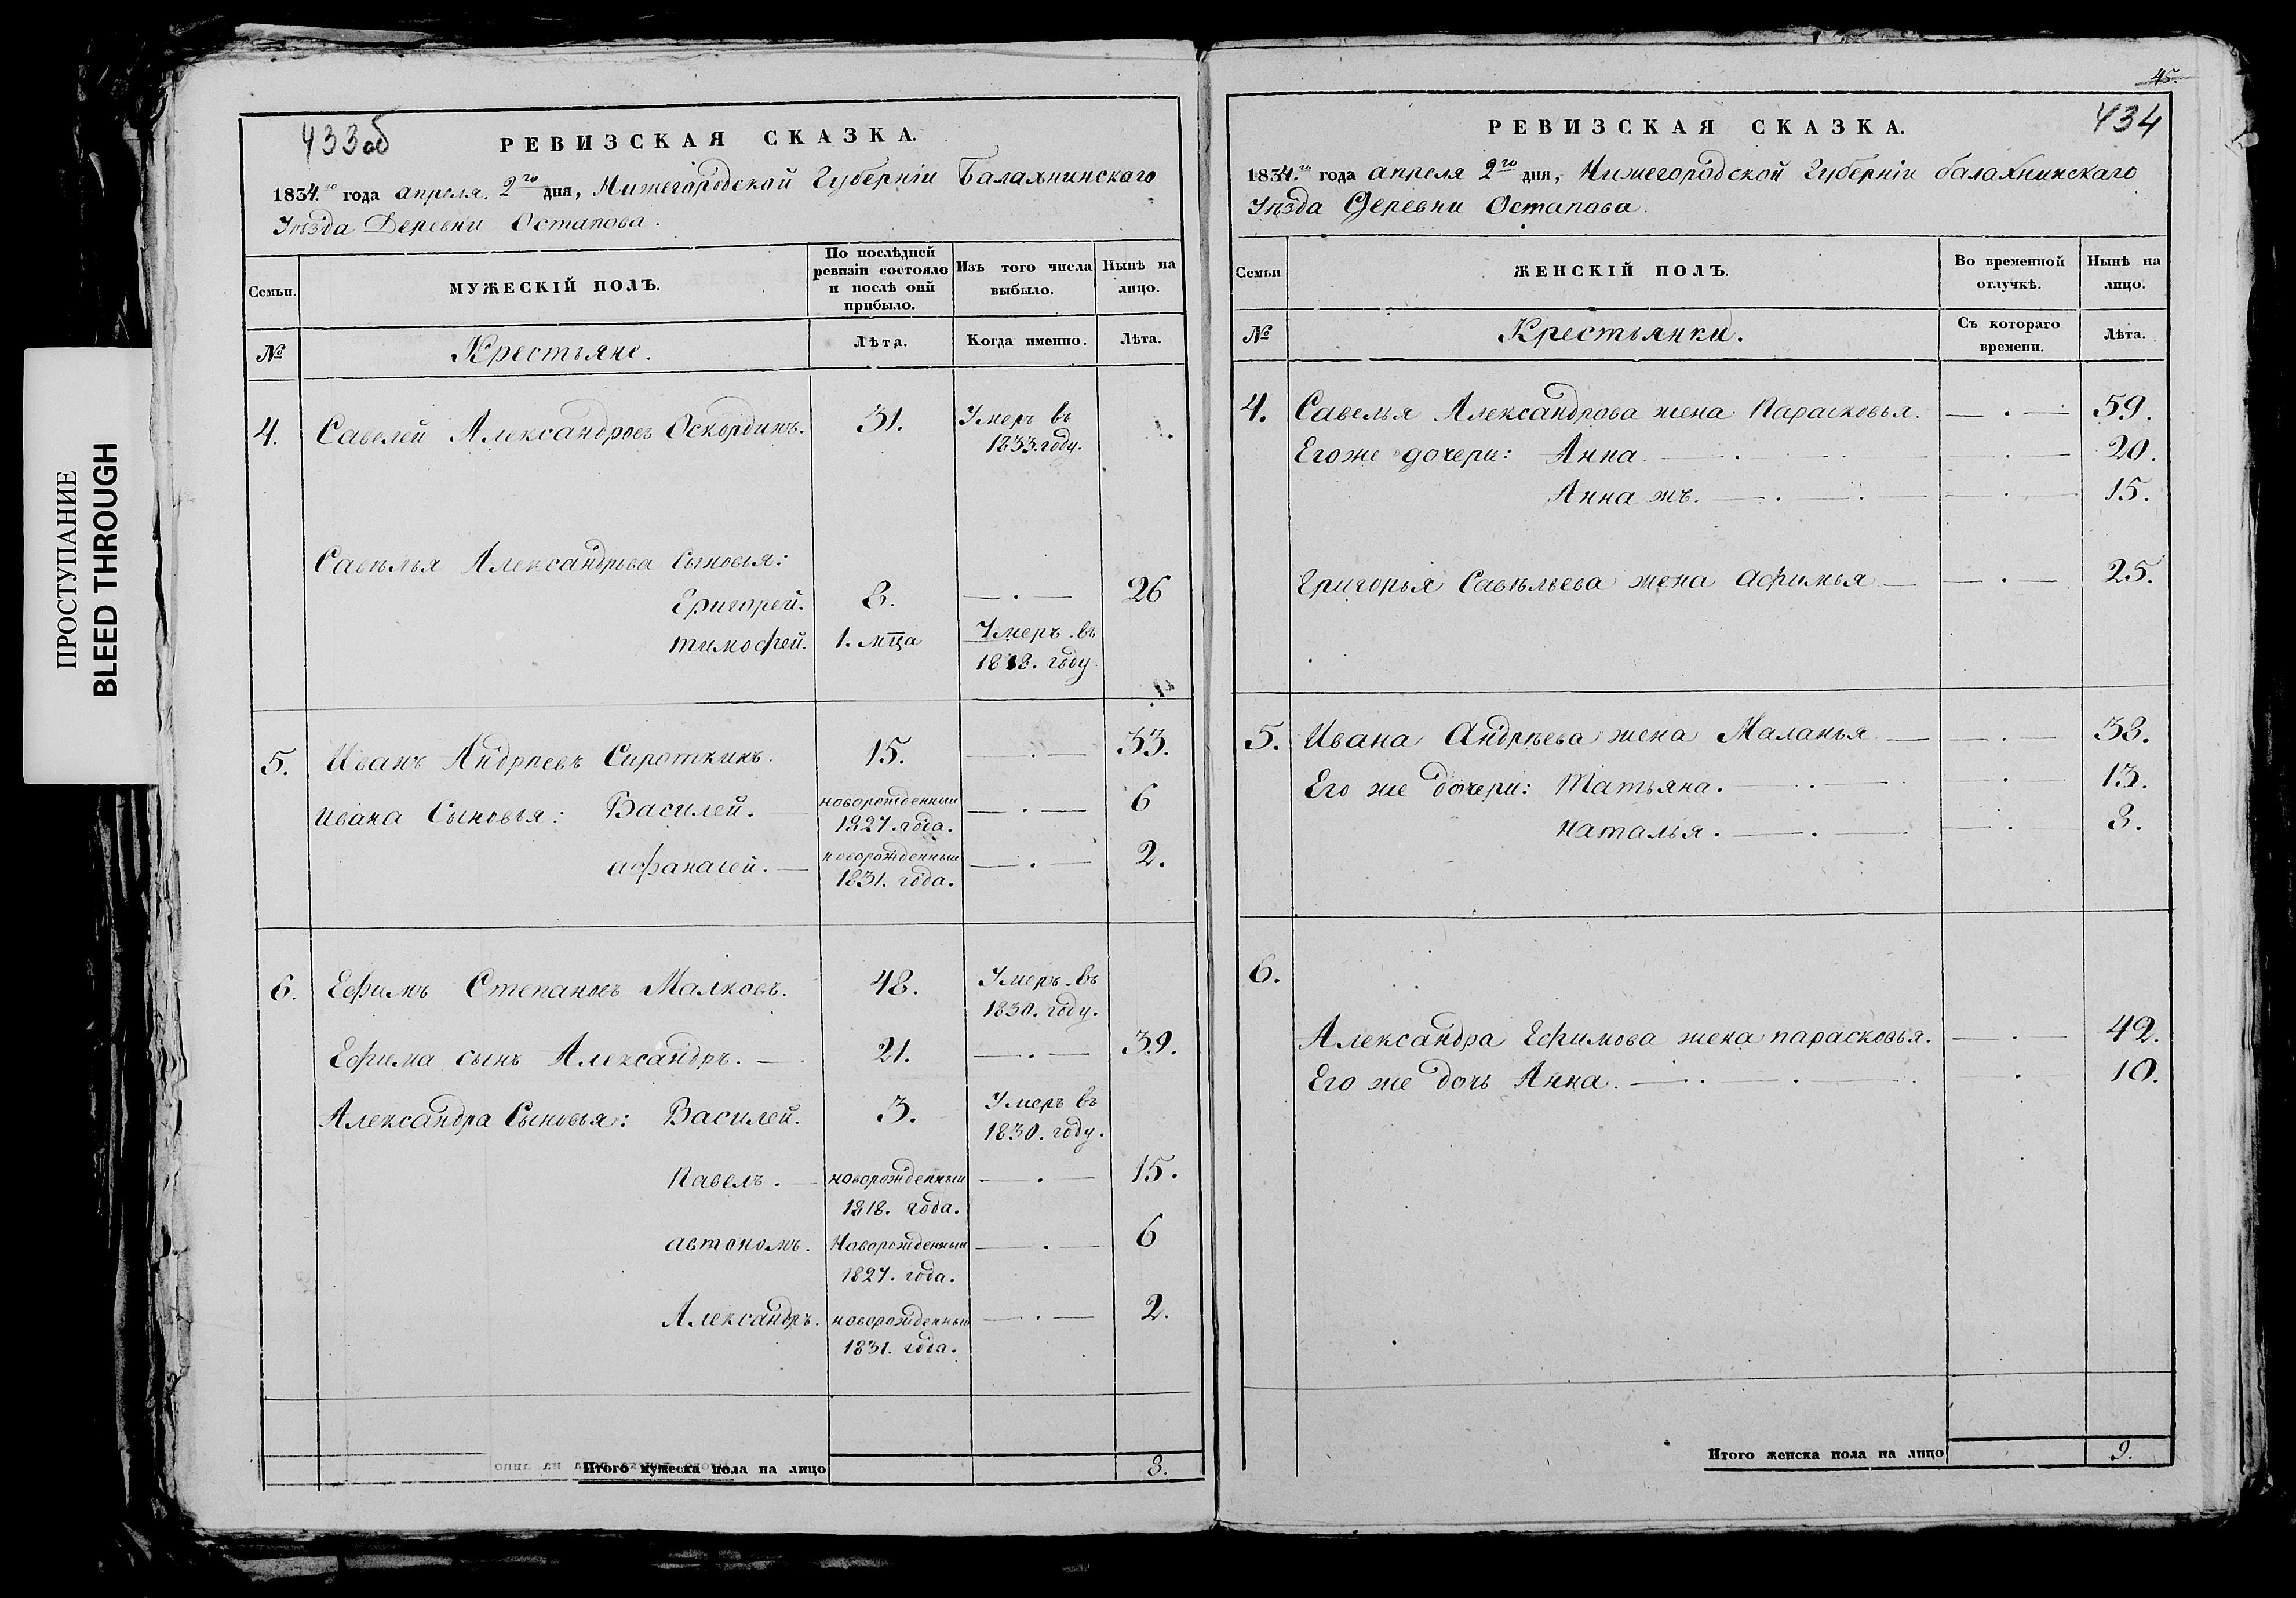 ПРОСТУПАНИЕ
BLEED THROUGH
433об
РЕВИЗСКАЯ СКАЗКА.
1834.го года апреля. 2го дня, Нижегородской Губерніи Балахнинскаго
Уѣзда Деревни Остапова.
Семьи.
МУЖЕСКІЙ ПОЛЪ.
По послѣдней ревизіи состояло и послѣ оной прибыло.
Изъ того числа выбыло.
Нынѣ на лицо.
№
Крестьяне.
Лѣта.
Когда именно.
Лѣта.
4. Савелей Александровъ Оскординъ. 31. Умеръ въ
1833. году.
Савѣлья Александрова Сыновья:
Григорей. 8. — . — 26
тимофей. 1. мца Умеръ въ
1818. году.
5. Иванъ Андреевъ Сироткинъ. 15. — . — 33.
Ивана Сыновья: Василей. новорожденный — . — 6
1827. года.
афанасей. — новорожденный — . — 2.
1831. года.
6. Ефимъ Степановъ Малковъ. 48. Умеръ въ
1830. году.
Ефима сынъ Александръ. — 21. — . — 39.
Александра Сыновья: Василей. 3. Умеръ въ
1830. году.
Павелъ. — новорожденный — . — 15.
1818. года.
автономъ. Новорожденный — . — 6
1827. года.
Александръ. новорожденный — . — 2.
1831. года.
Итого мужеска пола на лицо 8.
45.
434
РЕВИЗСКАЯ СКАЗКА.
1834.го года апреля 2го дня, Нижегородской Губерніи балахнинскаго
Уѣзда Деревни Остапова.
Семьи
ЖЕНСКІЙ ПОЛЪ.
Во временной отлучкѣ.
Нынѣ на лицо.
№
Крестьянки.
Съ котораго времени.
Лѣта.
4. Савелья Александрова жена Парасковья. — . — 59.
Егоже дочери: Анна. — . — 20.
Анна жъ. — . — 15.
Григорья Савѣльева жена Афимья — — . — 25.
5. Ивана Андрѣева жена Маланья — — . — 38.
Его же дочери: Татьяна. — . — 13.
наталья. — . — 8.
6.
Александра Ефимова жена парасковья. — . — 42.
Его же дочь Анна. — . — 10.
Итого женска пола на лицо 9.